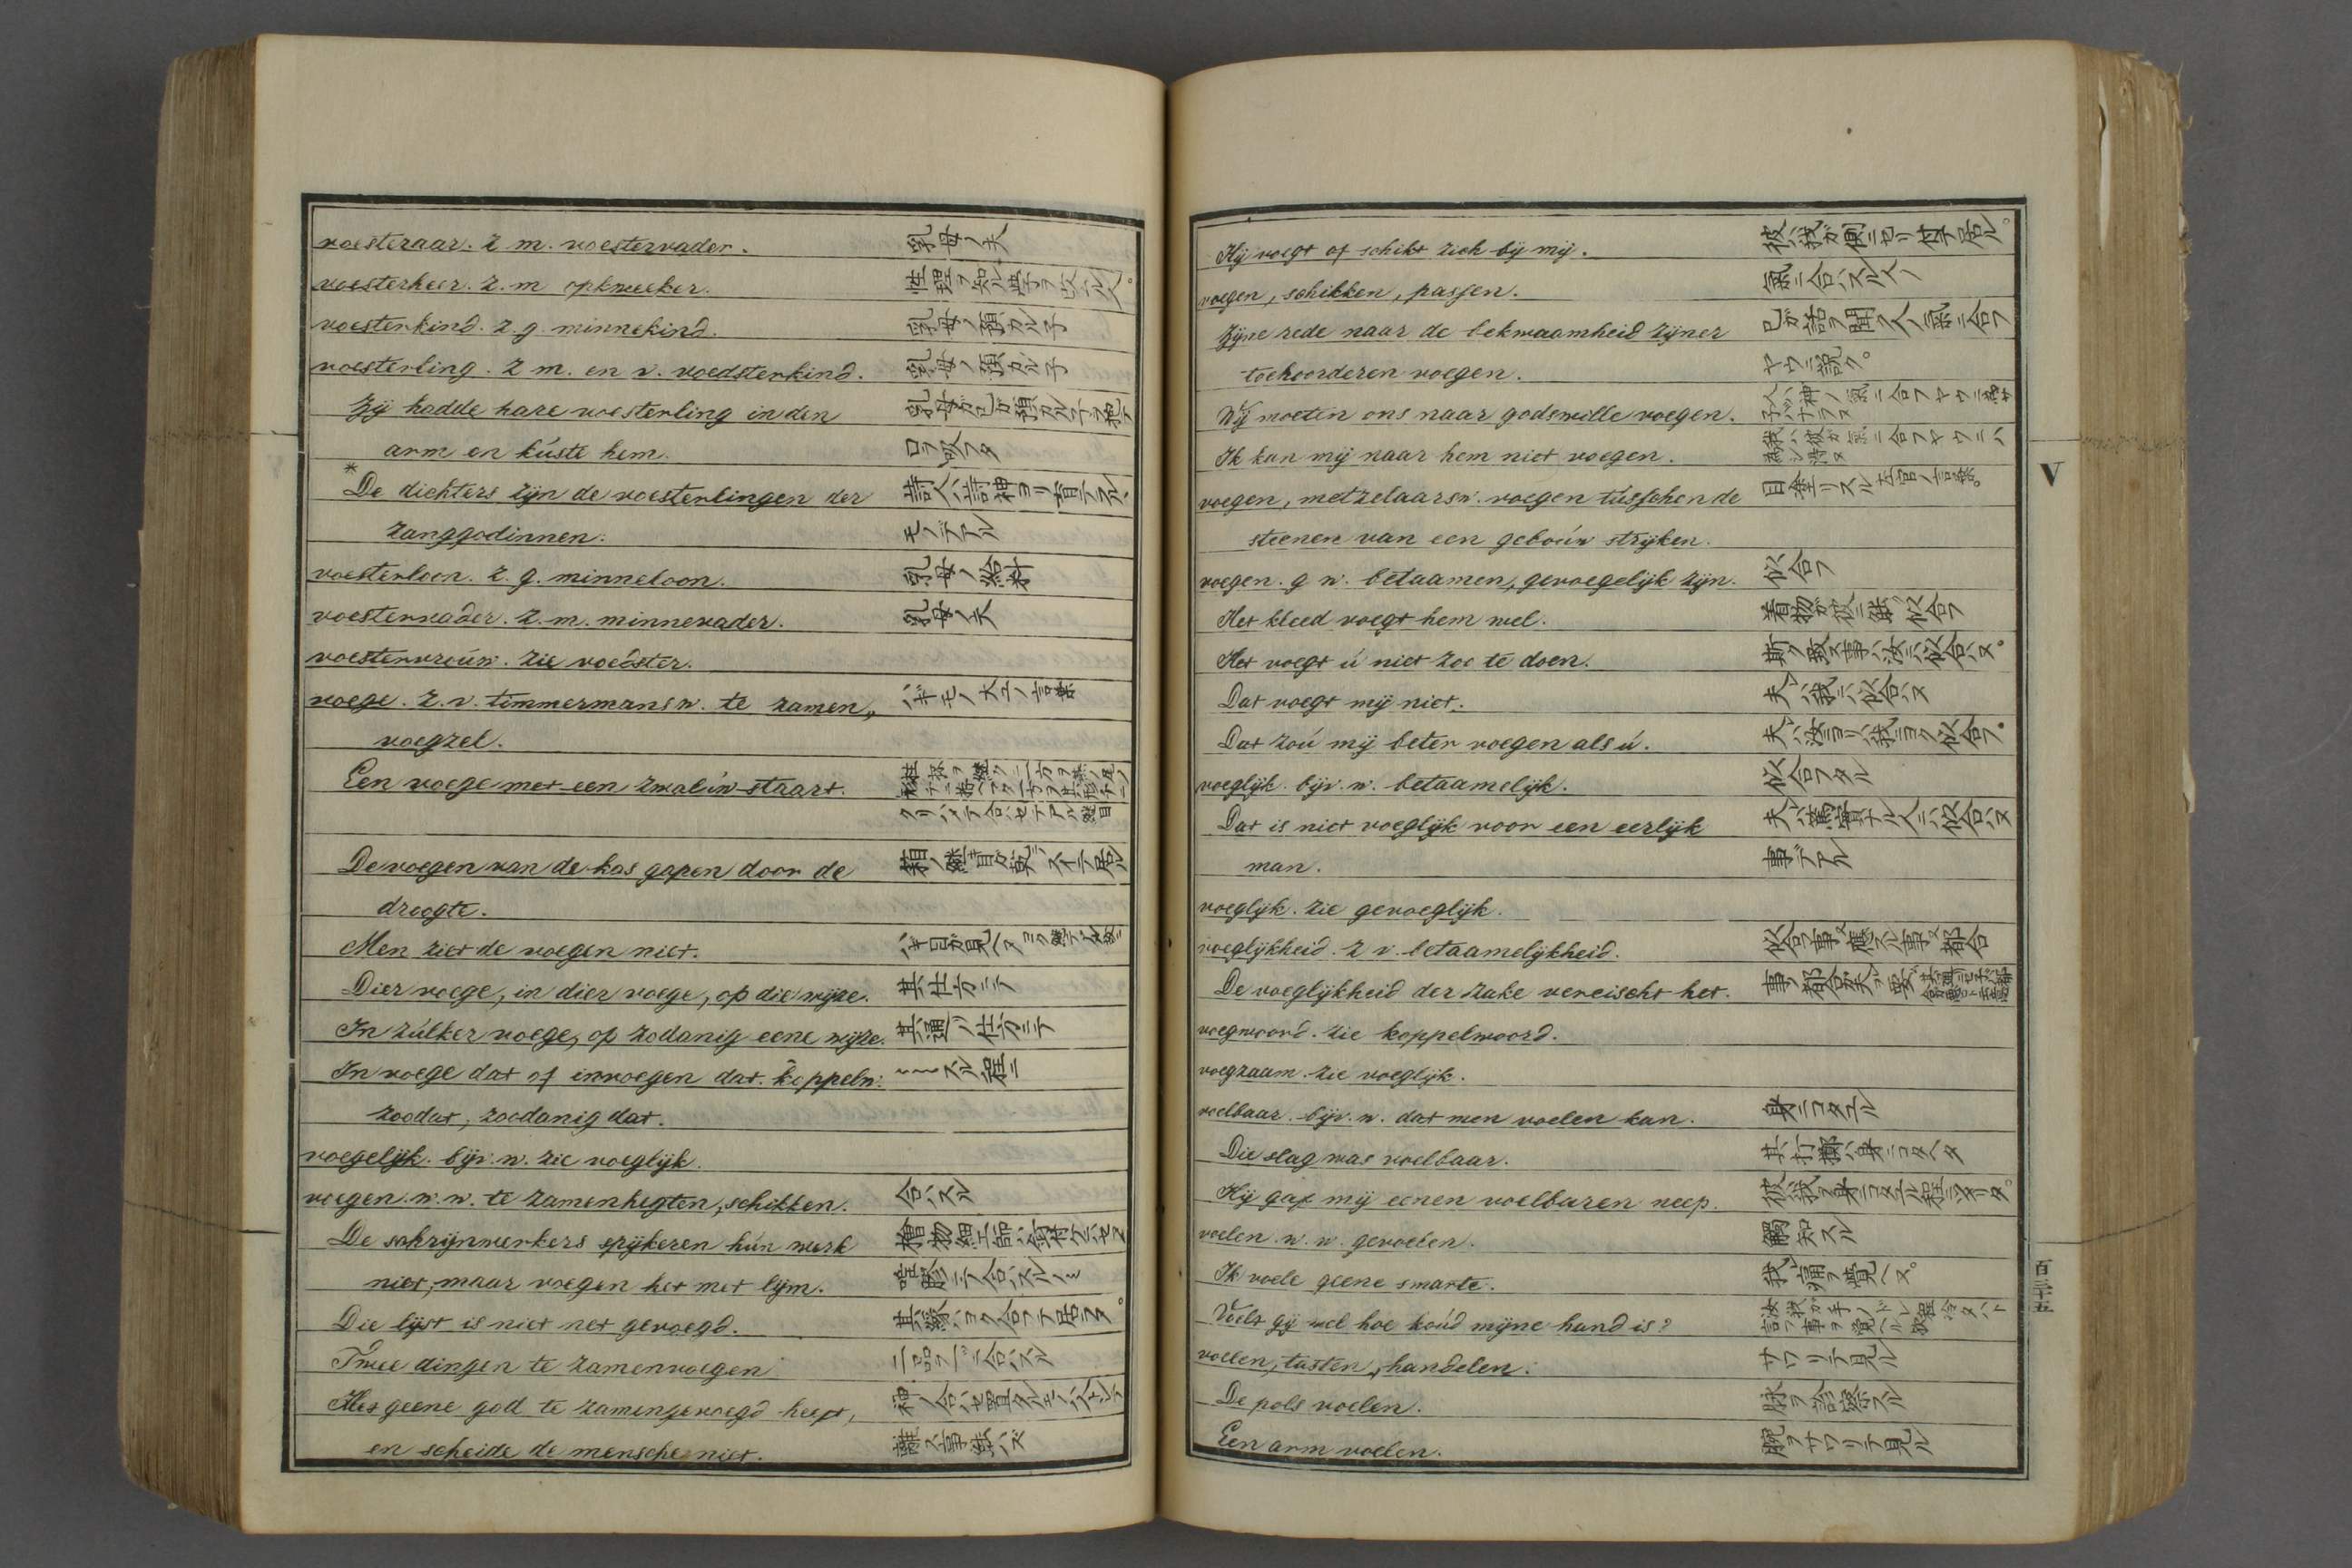 voesteraar. z. m. voestervader. 乳母ノ夫
voesterheer. z. m opkweeker.
voesterkind. z. g. minnekind. 乳母ノ預カル子
voesterling. z m. en v. voedsterkind. 乳母ノ預カル子
Zij hadde hare voesterling in den 乳母ガ己ガ預カル子ヲ抱テ
arm en kúste hem. 口ヲ吸フタ
* De dichters zijn de voesterlingen der
zanggodinnen. モノデアル
voesterloon. z. g. minneloon. 乳母ノ給料
voestervader. z. m. minnevader. 乳母ノ夫
voestervroúw. zie voedster.
voege. z. v. timmermans w. te zamen„ ハギモノ 大工ノ言葉
voegzel.
Een voege met een zwalúw-staart.
クリハメテ合ハセテアル継目
De voegen van de kas gapen door de
droogte.
Men ziet de voegen niet.
Dier voege, in dier voege, op die wijze. 其仕方ニテ
In zúlker voege, op zodanig eene wijze. 其通リノ仕方ニテ
In voege dat of invoegen dat. koppelw: スル程ニ
zoodat, zoodanig dat.
voegelijk. bijv. w. zie voeglijk.
voegen. w. w. te zamenhegten, schikken. 合ハスル
De schrijnwerkers spijkeren hún werk
niet, maar voegen het met lijm.
Die lijst is niet net gevoegd. 其縁ハヨク合フテ居ラヌ。
Twee dingen te zamenvoegen. 二品ヲ一ニ合ハスル
Het geene god te zamengevoegd heeft,
en scheide de mensche niet. 離ス事能ハズ
Hij voegt of schikt zich bij mij.
voegen, schikken, passen. 気ニ合ハスル
Zijne rede naar de bekwaamheid zijner 己ガ話ヲ聞ク人ノ気ニ合フ
toehoorderen voegen. ヤウニ説ク。
Wij moeten ons naar godswille voegen. 人ハ神ノ気ニ合フヤウニ
子バナラヌ
Ik kan mij naar hem niet voegen. 我ハ彼ガ気ニ合フヤウニハ
voegen, metzelaarsw. voegen tússchen de 目塗リスル 左官ノ言葉。
steenen van een geboúw strijken.
voegen. g w. betaamen, gevoegelijk zijn. 似合フ
Het kleed voegt hem wel. 着物ガ彼ニ能ク似合フ
Het voegt ú niet zoo te doen. 斯ク致ス事ハ汝ニハ似合ハヌ。
Dat voegt mij niet. 夫レハ我ニハ似合ハヌ
Dat zoú mij beter voegen als ú. 夫レハ汝ヨリハ我ニヨク似合フ。
voeglijk. bijv. w. betaamelijk. 似合フタル
Dat is niet voeglijk voor een eerlijk 夫レハ篤実ナル人ニハ似合ハヌ
man. 事デアル
voeglijk. zie gevoeglijk.
voeglijkheid. z v. betaamelijkheid.
De voeglijkheid der zake vereischt het.
voegwoord. zie koppelwoord.
voegzaam. zie voeglijk.
voelbaar. bijv. w. dat men voelen kan. 身ニコタユル
Die slag was voelbaar. 其打擲ハ身ニコタヘタ
Hij gaf mij eenen voelbaren neep.
voelen. w. w. gevoelen. 觸知スル
Ik voele geene smarte. 我レハ痛ヲ覚ヘヌ。
Voelt gij wel hoe koúd mijne hand is?
voelen, tasten, handelen. サワリテ見ル
De pols voelen. 脉ヲ診察スル
Een arm voelen. 腕ヲサワリテ見ル
V
百三十五